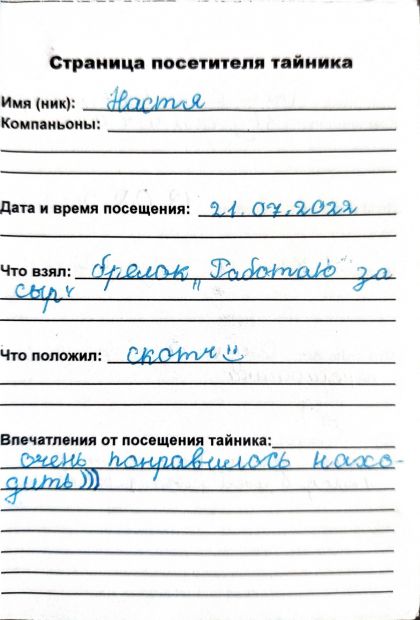 Страница посетителя тайника
Имя (ник): Настя
Компаньоны:
Дата и время посещения: 21.07.2022
Что взял: брелок „Работаю за
сыр“
Что положил: скотч :)
Впечатления от посещения тайника:
очень понравилось нахо-
дить)))